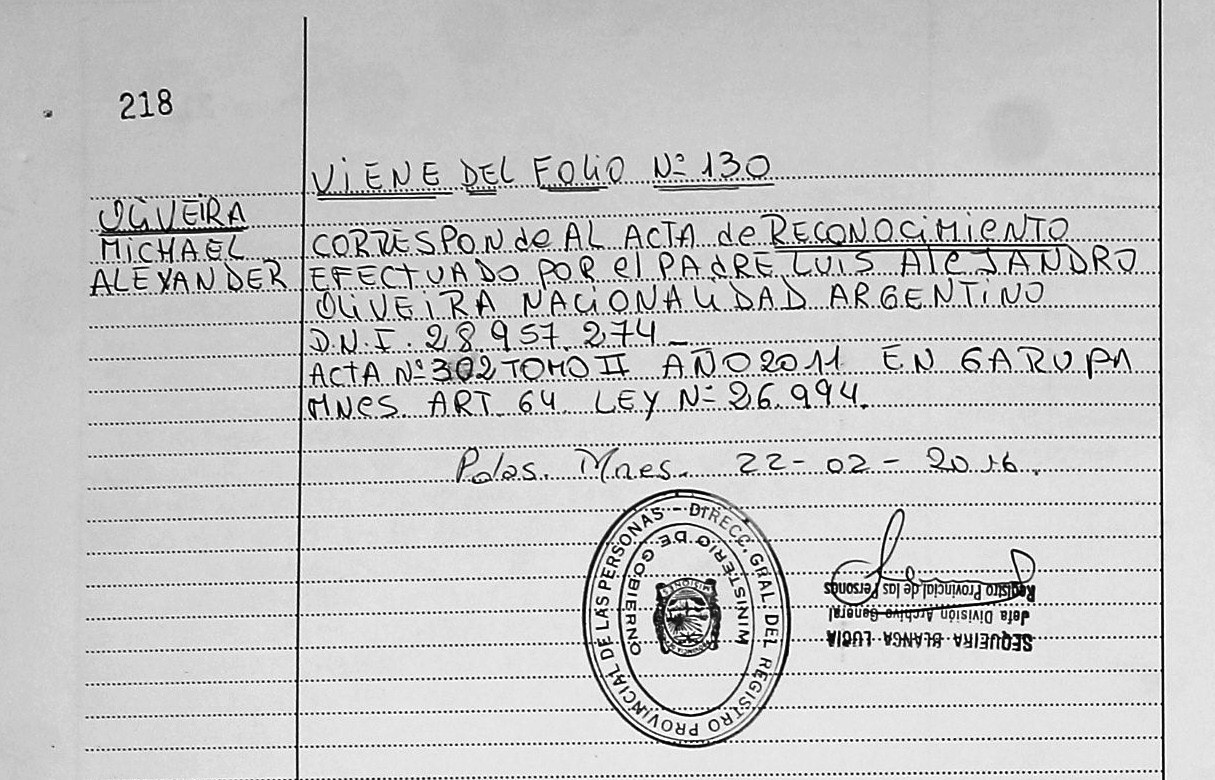 218
VIENE DEL FOLIO Nº 130
OLIVEIRA
MICHAEL
ALEXANDER
CORRESPONde AL ACTA de RECONOCIMIENTO
EFECTUADO POR el PAdRE LUIS AleJANDRO
OLIVEIRA NACIONALIDAD ARGENTINO
D.N.I. 28.957.274_
ACTA Nº 302 TOMO II AÑO 2011 EN GARUPA
MNES ART. 64 LEY Nº 26.994.
Pdas. Mnes. 22-02-2016.
DIRECC. GRAL. DEL REGISTRO PROVINCIAL DE LAS PERSONAS
MINISTERIO DE GOBIERNO
SEQUEIRA BLANCA LUCIA
Jefa División Archivo General
Registro Provincial de las Personas